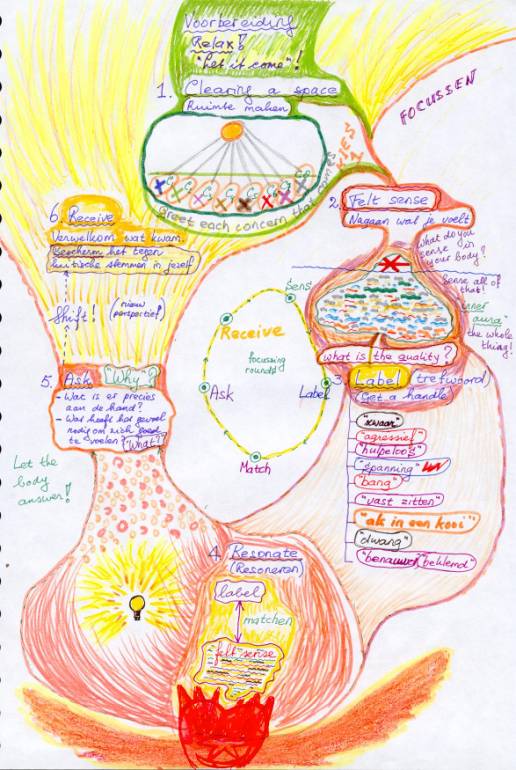 Voorbereiding
Relax!
"Let it come"!
1. Clearing a space
Ruimte maken
Greet each concern that comes
FOCUSSEN
2. Felt sense
Nagaan wat je voelt
What do you
sense in
your body?
Sense all of
that!
"inner
aura"
the whole
thing!
what is the quality?
3. Label trefwoord
(Get a handle)
"zwaar"
"agressief"
"hulpeloos"
"spanning"
"bang"
"vast zitten"
"als in een kooi"
"dwang"
"benauwd/beklemd"
4. Resonate
(Resoneren)
label
matchen
"felt" sense
5. Ask "Why"?
- Wat is er precies
aan de hand?
- Wat heeft het gevoel
nodig om zich goed
te voelen? "What"?
Let the
body
answer!
Shift! (nieuw
perspectief)
6. Receive
Verwelkom wat kwam.
Bescherm het tegen
kritische stemmen in jezelf
Receive
focussing
rounds
Sens
Label
Match
Ask